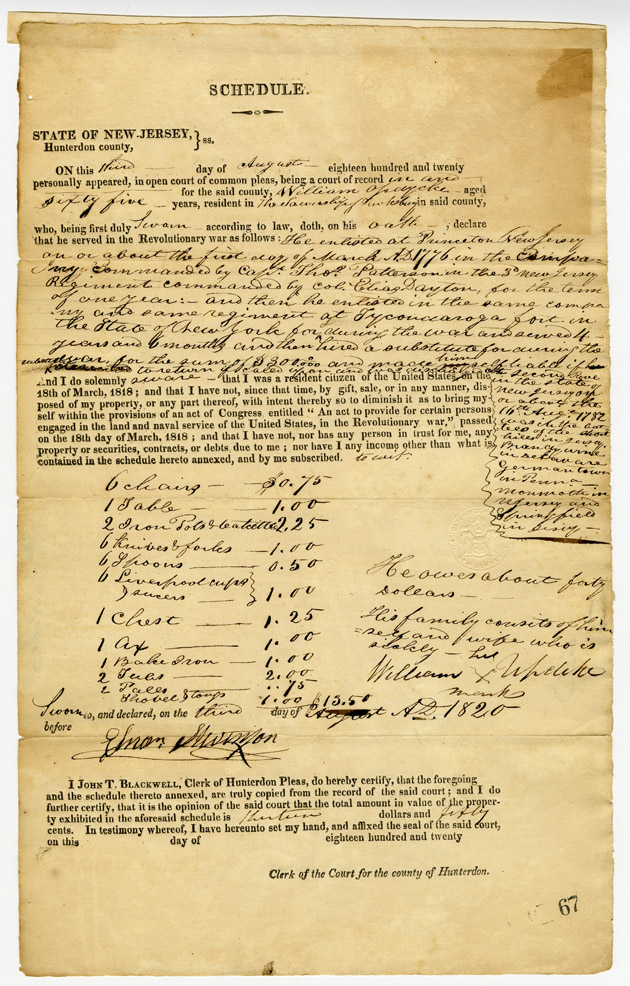 SCHEDULE.
STATE OF NEW-JERSEY, } ss.
Hunterdon county,
ON this third day of August eighteen hundred and twenty
personally appeared, in open court of common pleas, being a court of record in and
for the said county, William Opdycke aged
sixty five years, resident in The Township of in said county,
who, being first duly Sworn according to law, doth, on his oath ; declare
that he served in the Revolutionary war as follows: He enlisted at Princeton New Jersey
on or about the first day of March AD 1776 in the Compa-
ny commanded by Capt. Thos. Patterson in the 3d New Jersey
Regiment commanded by Col. Elias Dayton, for the term
of one year:- and then he enlisted in the same compa
ny and same regiment at Ticonderoga fort in
the State of New York for during the war and served 4
years and 6 months and then hired a substitute for during the
war, for the sum of and made himself liable if the
substitute to return
And I do solemnly swear that I was a resident citizen of the United States, on the
18th of March, 1818; and that I have not, since that time, by gift, sale, or in any manner, dis-
posed of my property, or any part thereof, with intent thereby so to diminish it as to bring my-
self within the provisions of an act of Congress, entitled "An act to provide for certain persons
engaged in the land and naval service of the United States, in the Revolutionary war," passed
on the 18th day of March, 1818; and that I have not, nor has any person in trust for me, any
property or securities, contracts, or debts, due to me; nor have I any income other than what is
contained in the schedule hereto annexed, and by me subscribed. to wit.
in the state
New Jersey on
or about the
16th Aug 1782
was in the bat
tles of the
Brandywine
in Delaware
Germantown
in Penna
Monmouth in
N Jersey and
Springfield
in Jersey
6 chairs — $0.75
1 Table — 1.00
2 Iron Pots & 2.25
6 Knives & forks — 1.00
6 Spoons — 0.50
6 Liverpool cups }
& saucers } 1.00
1 Chest — 1.25
1 Ax — 1.00
1 Bake Iron — 1.00
2 Tubs — 2.00
2 Pales — .75
Shovel & tongs 1.00 $13.50
He owes about forty
Dollars —
His family consits of him
=self and wife who is
sickly
his
William X Updike
mark
Sworn to, and declared, on the third day of August AD. 1820
before
I JOHN T. BLACKWELL, Clerk of Hunterdon Pleas, do hereby certify, that the foregoing
and the schedule thereto annexed, are truly copied from the record of the said court; and I do
further certify, that it is the opinion of the said court that the total amount in value of the proper-
ty exhibited in the aforesaid schedule is thirteen dollars and fifty
cents. In testimony whereof, I have hereunto set my hand, and affixed the seal of the said court,
on this day of eighteen hundred and twenty
Clerk of the Court for the county of Hunterdon.
67